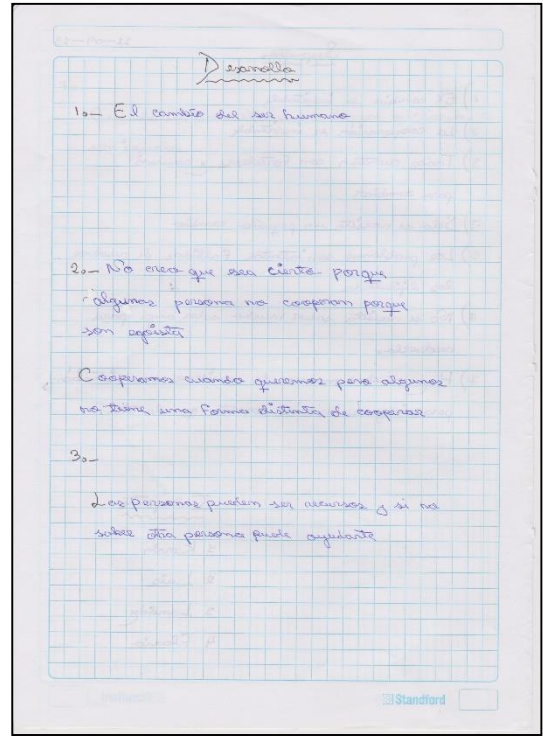 Desarrollo
1.- El cambio del ser humano
2.- No creo que sea cierto porque
algunas persona no cooperan porque
son egoista
Cooperamos cuando queremos pero algunos
no tiene una forma distinta de cooperar
3.-
Las personas pueden ser recursos y si no
sabes otra persona puede ayudarte
Standford